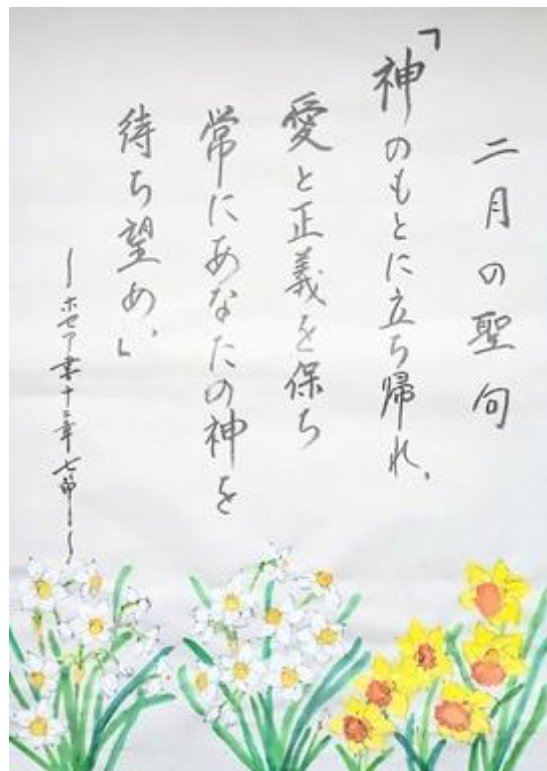 二月の聖句
「神のもとに立ち帰れ、
愛と正義を保ち
常にあなたの神を
待ち望め。」
〜ホセア書十二章七節〜